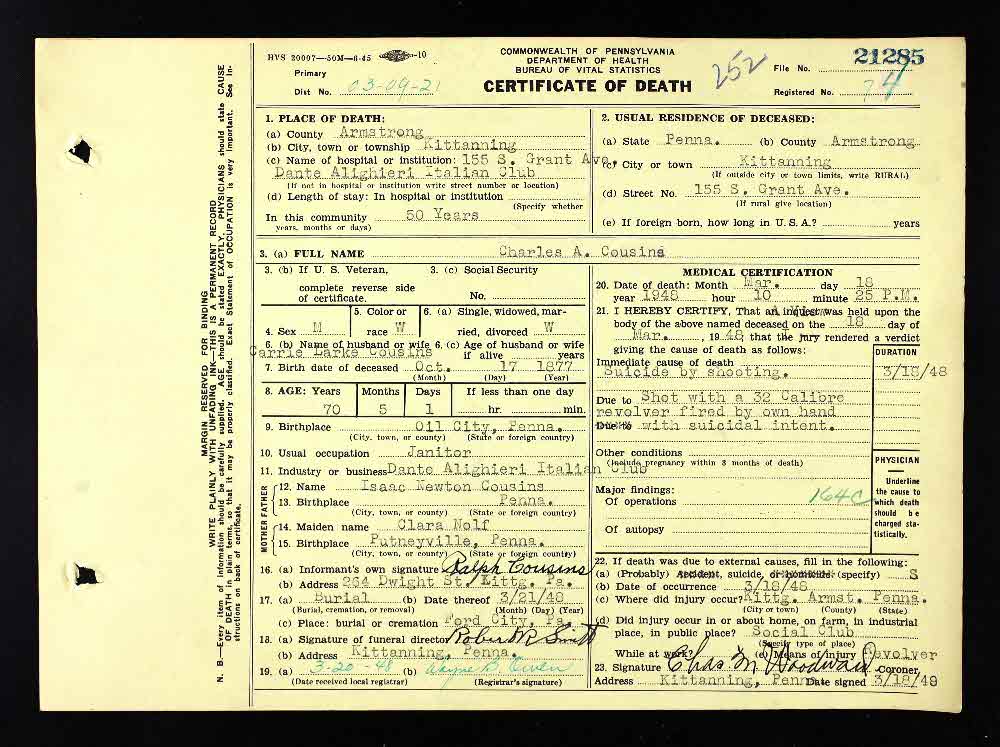 HVS 20007—50M—6-45 10
COMMONWEALTH OF PENNSYLVANIA
DEPARTMENT OF HEALTH
BUREAU OF VITAL STATISTICS
CERTIFICATE OF DEATH
252
File No. 21285
Primary
Dist No. 03-09-21
Registered No. 74
MARGIN RESERVED FOR BINDING
WRITE PLAINLY WITH UNFADING INK—THIS IS A PERMANENT RECORD
N. B.—Every item of information should be carefully supplied. AGE should be stated EXACTLY. PHYSICIANS should state CAUSE
OF DEATH in plain terms, so that it may be properly classified. Exact Statement of OCCUPATION is very important. See In-
structions on back of certificate.
1. PLACE OF DEATH:
(a) County Armstrong
(b) City, town or township Kittanning
(c) Name of hospital or institution: 155 S. Grant Ave.
Dante Alighieri Italian Club
(If not in hospital or institution write street number or location)
(d) Length of stay: In hospital or institution
(Specify whether
In this community 50 Years
years, months or days)
2. USUAL RESIDENCE OF DECEASED:
(a) State Penna. (b) County Armstrong
(c) City or town Kittanning
(If outside city or town limits, write RURAL)
(d) Street No. 155 S. Grant Ave.
(If rural give location)
(e) If foreign born, how long in U. S. A.? years
3. (a) FULL NAME Charles A. Cousins
3. (b) If U. S. Veteran,
complete reverse side
of certificate.
3. (c) Social Security
No.
4. Sex M
5. Color or
race W
6. (a) Single, widowed, mar-
ried, divorced W
6. (b) Name of husband or wife 6. (c) Age of husband or wife
Carrie Larke Cousins if alive years
7. Birth date of deceased Oct. 17 1877
(Month) (Day) (Year)
8. AGE: Years Months Days If less than one day
70 5 1 hr. min.
9. Birthplace Oil City, Penna.
(City, town, or county) (State or foreign country)
10. Usual occupation Janitor
11. Industry or business Dante Alighieri Italian Club
FATHER
12. Name Isaac Newton Cousins
13. Birthplace Penna.
(City, town, or county) (State or foreign country)
MOTHER
14. Maiden name Clara Nolf
15. Birthplace Putneyville, Penna.
(City, town, or county) (State or foreign country)
16. (a) Informant's own signature Ralph Cousins
(b) Address 264 Dwight St. Kittg. Pa.
17. (a) Burial (b) Date thereof 3/21/48
(Burial, cremation, or removal) (Month) (Day) (Year)
(c) Place: burial or cremation Ford City, Pa.
18. (a) Signature of funeral director Robert R Smith
(b) Address Kittanning, Penna.
19. (a) 3-20-48 (b) B. Owen
(Date received local registrar) (Registrar's signature)
MEDICAL CERTIFICATION
20. Date of death: Month Mar. day 18
year 1948 hour 10 minute 25 P.M.
21. I HEREBY CERTIFY, That an inquest was held upon the
body of the above named deceased on the 18 day of
Mar., 1948, that the jury rendered a verdict
giving the cause of death as follows:
DURATION
Immediate cause of death
Suicide by shooting. 3/18/48
Due to Shot with a 32 Calibre
revolver fired by own hand
Due to with suicidal intent.
Other conditions
(Include pregnancy within 3 months of death)
PHYSICIAN
Underline
the cause to
which death
should be
charged sta-
tistically.
Major findings:
Of operations 164C
Of autopsy
22. If death was due to external causes, fill in the following:
(a) (Probably) Accident, suicide, or homicide (specify) S
(b) Date of occurrence 3/18/48
(c) Where did injury occur? Kittg. Armst. Penna.
(City or town) (County) (State)
(d) Did injury occur in or about home, on farm, in industrial
place, in public place? Social Club
(Specify type of place)
While at work? (e) Means of injury Revolver
23. Signature Chas M Woodward, coroner
Address Kittanning, Penna. Date signed 3/18/48